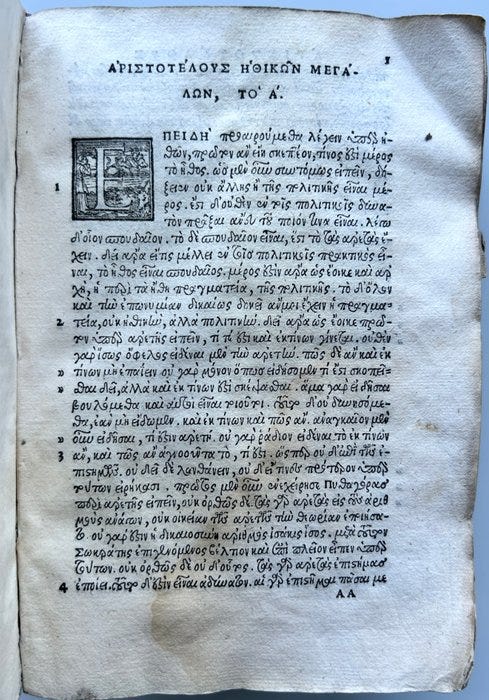 1
ΑΡΙΣΤΟΤΕΛΟΥΣ ΗΘΙΚΩΝ ΜΕΓΑ-
ΛΩΝ, ΤΟ Α.
ΕΠΕΙΔΗ προαιρούμεθα λέγειν ὑπὲρ ἠ-
θῶν, πρῶτον ἂν εἴη σκεπτέον, τίνος ἐστὶ μέρος
1 τὸ ἦθος. ὡς μὲν οὖν συντόμως εἰπεῖν, δό-
ξειεν οὐκ ἄλλης ἢ τῆς πολιτικῆς εἶναι μέ-
ρος. ἔστι δ' οὐθὲν ἐν τοῖς πολιτικοῖς δυνα-
τὸν πρᾶξαι ἄνευ τοῦ ποιόν τινα εἶναι. λέγω
δ' οἷον σπουδαῖον. τὸ δὲ σπουδαῖον εἶναι, ἔστι τὸ τὰς ἀρετὰς ἔ-
χειν. δεῖ ἄρα εἴ τις μέλλει ἐν τοῖς πολιτικοῖς πρακτικὸς εἶ-
ναι, τὸ ἦθος εἶναι σπουδαῖος. μέρος ἐστὶν ἄρα ὡς ἔοικε καὶ ἀρ-
χὴ, ἡ περὶ τὰ ἤθη πραγματεία, τῆς πολιτικῆς. τὸ δ' ὅλον
καὶ τὴν ἐπωνυμίαν δικαίως δοκεῖ ἄν μοι ἔχειν ἡ πραγμα-
2 τεία, οὐκ ἠθικὴν, ἀλλὰ πολιτικήν. δεῖ ἄρα ὡς ἔοικε πρῶ-
τον ὑπὲρ ἀρετῆς εἰπεῖν, τί τέ ἐστι καὶ ἐκ τίνων γίνεται. οὐθὲν
γὰρ ἴσως ὄφελος εἰδέναι μὲν τὴν ἀρετήν. πῶς δὲ ἂν καὶ ἐκ
" τίνων μὴ ἐπαΐειν. οὐ γὰρ μόνον ὅπως εἰδήσομεν τί ἐστι σκοπεῖ-
" σθαι δεῖ, ἀλλὰ καὶ ἐκ τίνων ἐστὶ σκέψασθαι. ἅμα γὰρ εἰδῆσαι
βουλόμεθα καὶ αὐτοὶ εἶναι τοιοῦτοι. τοῦτο δ' οὐ δυνησόμε-
θα, ἐὰν μὴ εἰδῶμεν. καὶ ἐκ τίνων καὶ πῶς ἄν. ἀναγκαῖον μὲν
" οὖν εἰδῆσαι, τί ἐστιν ἀρετή. οὐ γὰρ ῥᾴδιον εἰδέναι τὸ ἐκ τίνων
3 ἂν, καὶ πῶς ἂν ἀγνοοῦντα τὸ, τί ἐστι. ὥσπερ οὐδ' ἐπὶ τῶν ἐ-
πιστημῶν. οὐ δεῖ δὲ λανθάνειν, οὐδ' εἴ τινες πρότερον ὑπὲρ
τούτων εἰρήκασι. πρῶτος μὲν οὖν ἐνεχείρησε Πυθαγόρας
περὶ ἀρετῆς εἰπεῖν, οὐκ ὀρθῶς δέ. τὰς γὰρ ἀρετὰς εἰς τοὺς ἀριθ-
μοὺς ἀνάγων, οὐκ οἰκείαν τῶν ἀρετῶν τὴν θεωρίαν ἐποιήσα-
το. οὐ γάρ ἐστιν ἡ δικαιοσύνη ἀριθμὸς ἰσάκις ἴσος. μετὰ τοῦτον
Σωκράτης ἐπιγενόμενος βέλτιον καὶ ἐπὶ πλεῖον εἶπεν ὑπὲρ
τούτων. οὐκ ὀρθῶς δὲ οὐδ' οὗτος. τὰς γὰρ ἀρετὰς ἐπιστήμας
4 ἐποίει. τοῦτο δ' ἐστὶν εἶναι ἀδύνατον. αἱ γὰρ ἐπιστῆμαι πᾶσαι με
AA